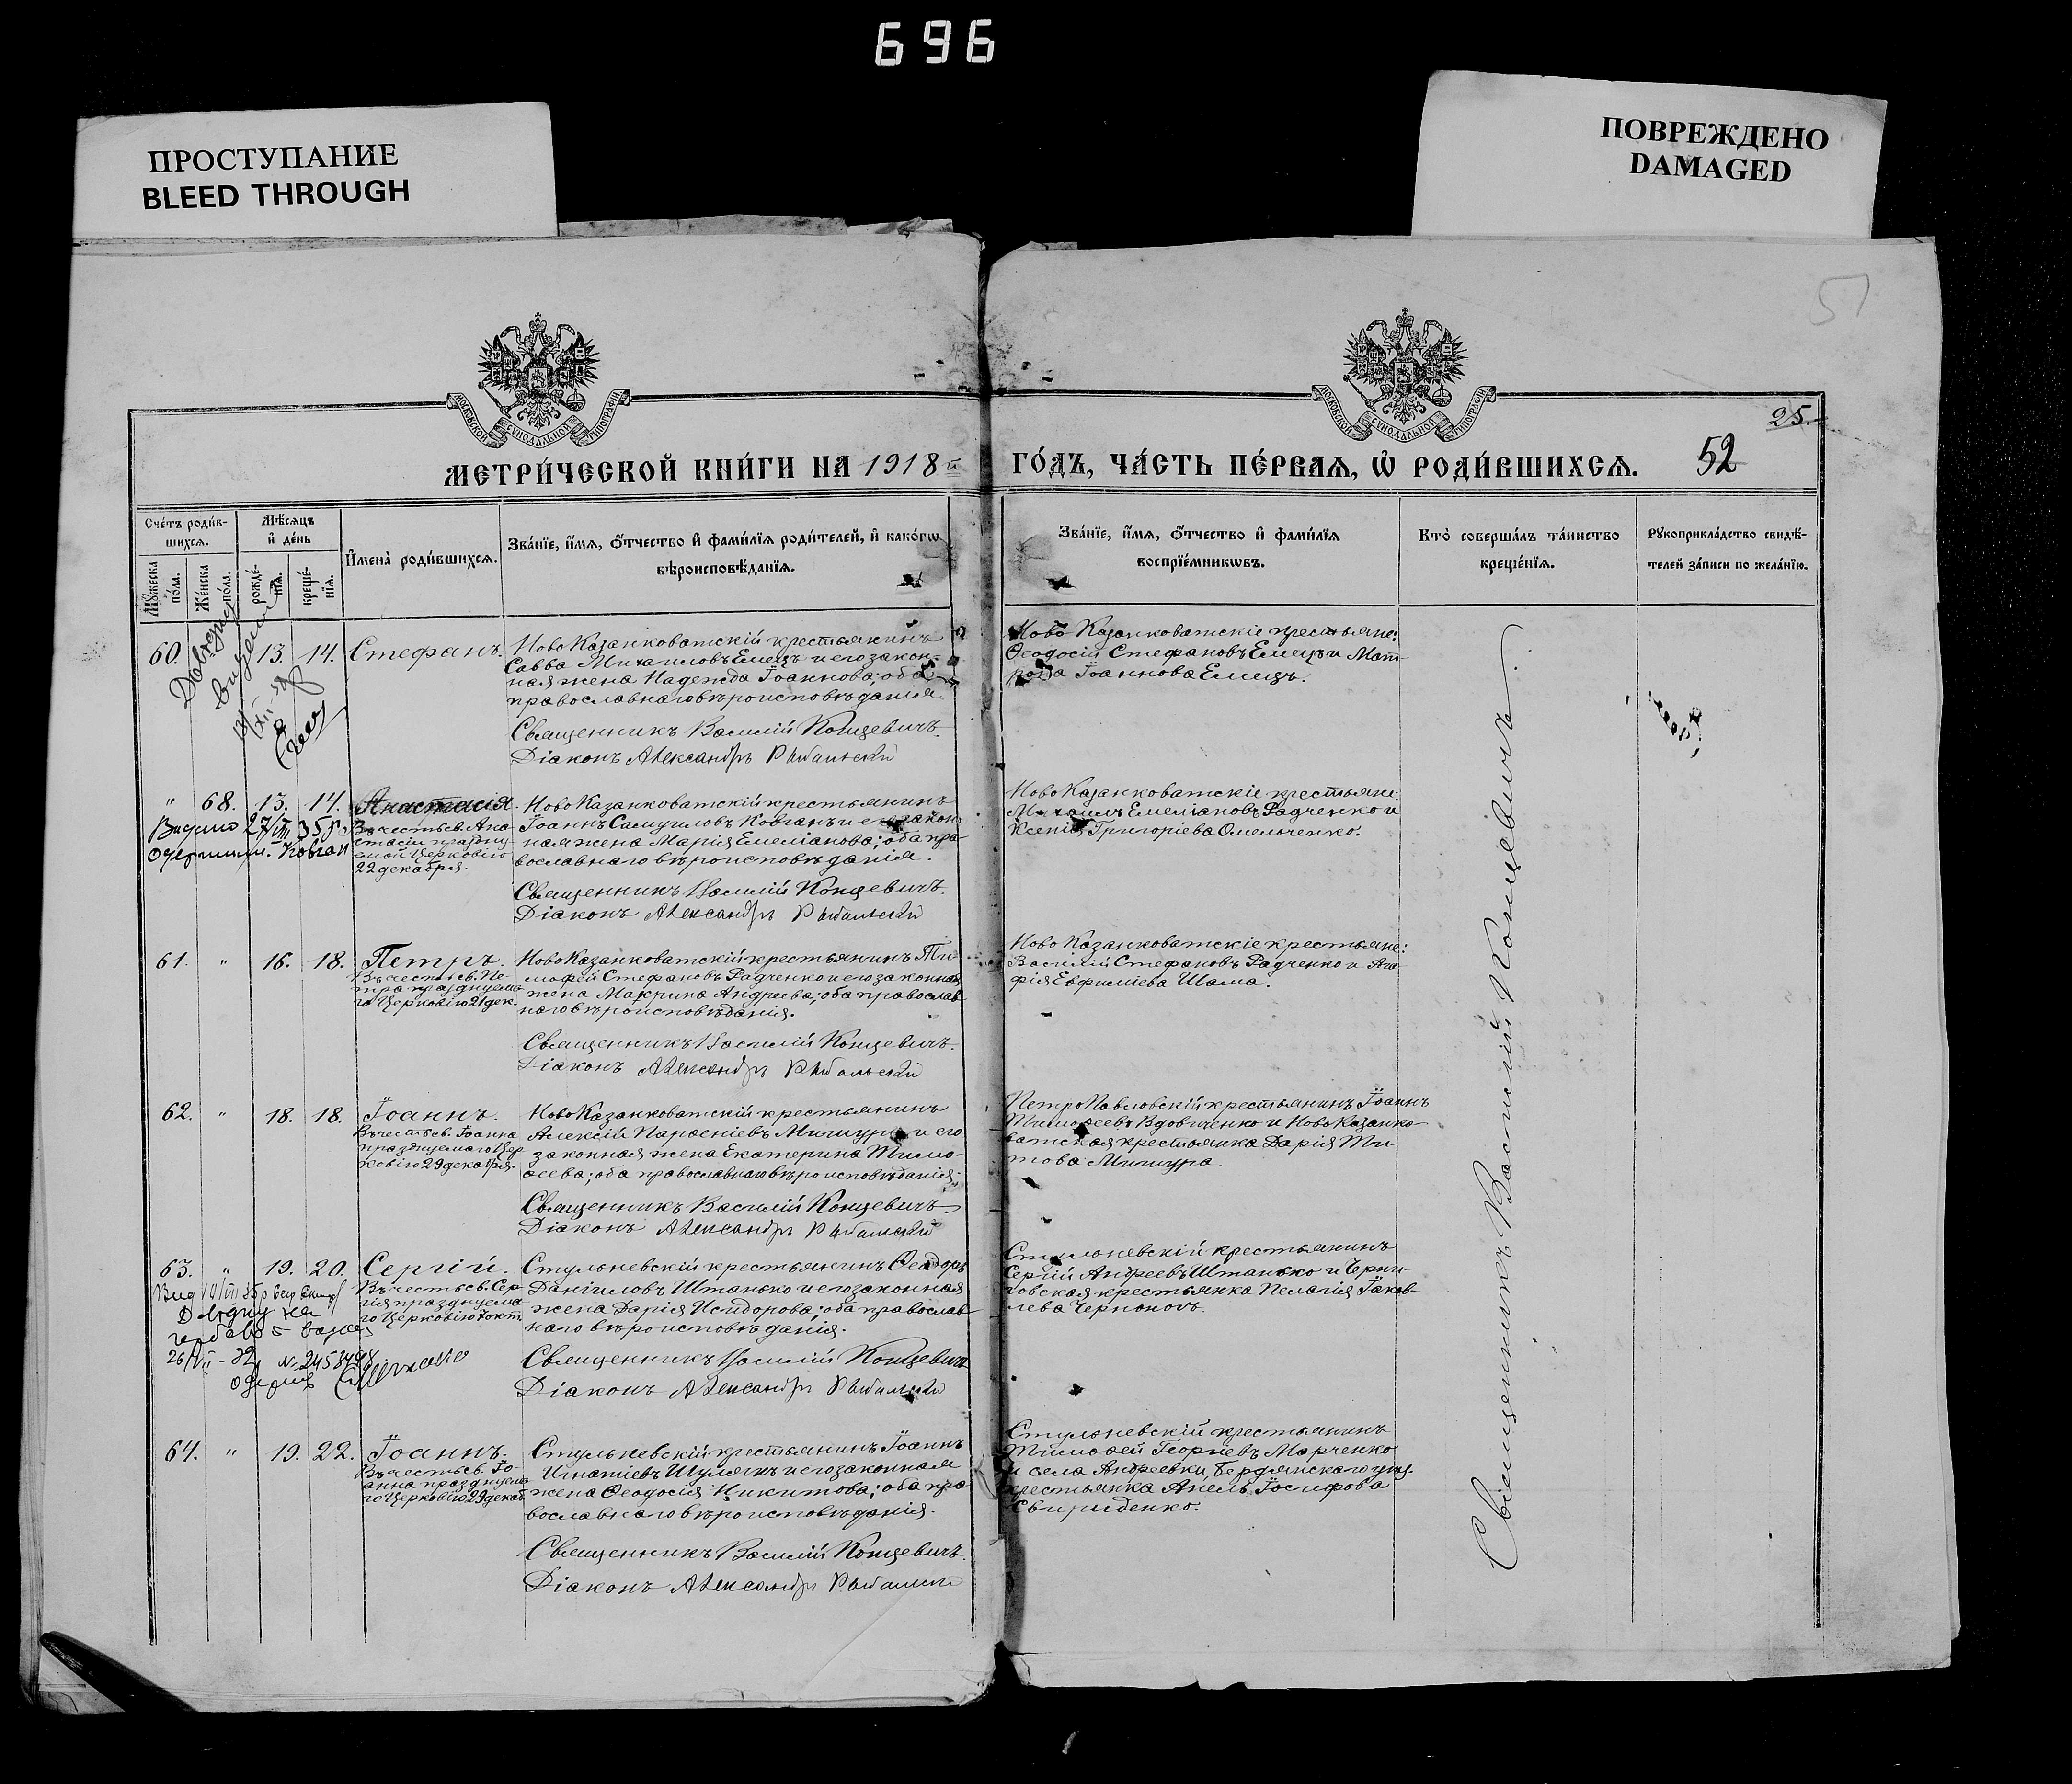 696
ПРОСТУПАНИЕ
BLEED THROUGH
ПОВРЕЖДЕНО
DAMAGED
51
МОСКОВСКОЙ СУНОДАЛЬНОЙ ТИПОГРАФІИ
МОСКОВСКОЙ СУНОДАЛЬНОЙ ТИПОГРАФІИ
25.
МЕТРИ́ЧЕСКОЙ КНИ́ГИ НА 1918й ГО́ДЪ, ЧА́СТЬ ПЕ́РВАЯ, Ѡ҆ РОДИ́ВШИХСЯ. 52
Сче́тъ роди́в-
шихся.
Мꙋ́жеска по́ла.
Же́нска по́ла.
Мѣ́сяцъ
и҆ де́нь
рожде́-
нїя.
креще́-
нїя.
И҆мена̀ роди́вшихся.
Зва́нїе, и҆́мя, ѻ҆́тчество и҆ фами́лїя роди́телей, и҆ како́гѡ
вѣроисповѣ́данїя.
Зва́нїе, и҆́мя, ѻ҆́тчество и҆ фами́лїя
воспрїе́мникѡвъ.
Кто̀ соверша́лъ та́инство
креще́нїя.
Рꙋкоприкла́дство свидѣ́-
телей за́писи по жела́нїю.
60. 13. 14. Стефанъ.
Ново Казанковатскій крестьянинъ
Савва Михаиловъ Емецъ и его закон-
ная жена Надежда Іоаннова; оба
православнаго вѣроисповѣданія.
Священникъ Василій Концевичъ.
Діаконъ Александръ Рыбальскій
Ново Казанковатскіе крестьяне:
Ѳеодосій Стефановъ Емецъ и Мат-
рона Іоаннова Емецъ.
" 68. 13. 14. Анастасія.
Видано 27/VIII 35 р.
Одержим. Ковган
Въ честь св. Ана-
стасіи праздну-
емой Церковію
22 декабря.
Ново Казанковатскій крестьянинъ
Іоаннъ Самуиловъ Ковганъ и его закон-
ная жена Марія Емеліанова; оба пра-
вославнаго вѣроисповѣданія.
Священникъ Василій Концевичъ.
Діаконъ Александръ Рыбальскій
Ново Казанковатскіе крестьяне:
Михаилъ Емеліановъ Радченко и
Ксенія Григоріева Омельченко.
61. " 16. 18. Петръ.
Въ честь св. Пе-
тра празднуема-
го Церковію 21 дек.
Ново Казанковатскій крестьянинъ Ти-
моѳей Стефановъ Радченко и его законная
жена Макрина Андреева; оба православ-
наго вѣроисповѣданія.
Священникъ Василій Концевичъ.
Діаконъ Александръ Рыбальскій
Ново Казанковатскіе крестьяне:
Василій Стефановъ Радченко и Ага-
фія Евфиміева Шама.
62. " 18. 18. Іоаннъ.
Въ честь св. Іоанна
празднуемаго Цер-
ковію 29 декабря.
Ново Казанковатскій крестьянинъ
Алексій Парѳеніевъ Мишура и его
законная жена Екатерина Тимо-
ѳеева; оба православнаго вѣроисповѣданія.
Священникъ Василій Концевичъ.
Діаконъ Александръ Рыбальскій
Петро Павловскій крестьянинъ Іоаннъ
Тимоѳеевъ Вдовиченко и Ново Казанко-
ватская крестьянка Дарія Ти-
това Мишура.
63. " 19. 20. Сергій.
Довідку на
26/VII - 32 № 2458498
одержив
Въ честь св. Сер-
гія празднуема-
го Церковію 7 окт.
Стульневскій крестьянинъ Ѳеодоръ
Даніиловъ Штанько и его законная
жена Дарія Исидорова; оба православ-
наго вѣроисповѣданія.
Священникъ Василій Концевичъ
Діаконъ Александръ Рыбальскій
Стульневскій крестьянинъ
Сергій Андреевъ Штанько и Черни-
говская крестьянка Пелагія Іаков-
лева Чернокочъ.
64. " 19. 22. Іоаннъ.
Въ честь св. Іо-
анна празднуема-
го Церковію 29 декаб.
Стульневскій крестьянинъ Іоаннъ
Игнатіевъ Шулякъ и его законная
жена Ѳеодосія Никитова; оба пра-
вославнаго вѣроисповѣданія.
Священникъ Василій Концевичъ.
Діаконъ Александръ Рыбальскій
Стульневскій крестьянинъ
Тимоѳей Георгіевъ Марченко
и села Андреевки, Бердянскаго уѣз.
крестьянка Анель Іосифова
Свириденко.
Священникъ Василій Концевичъ.